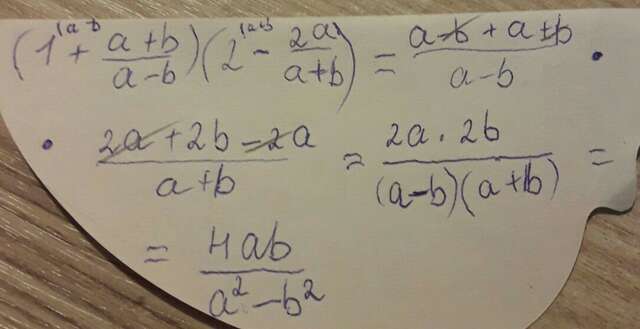 (1^(a-b + (a+b)/(a-b))(2^(a+b - 2a/(a+b)) = (a-b+a+b)/(a-b) ·
· (2a+2b-2a)/(a+b) = (2a·2b)/((a-b)(a+b)) =
= 4ab/(a²-b²)